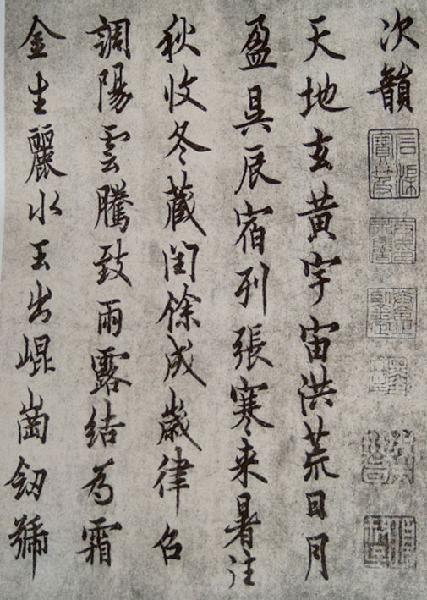 次韻
天地玄黃宇宙洪荒日月
盈昃辰宿列張寒来暑往
秋收冬藏閏餘成歲律召
調陽雲騰致雨露結為霜
金生麗水玉出崐崗釼號